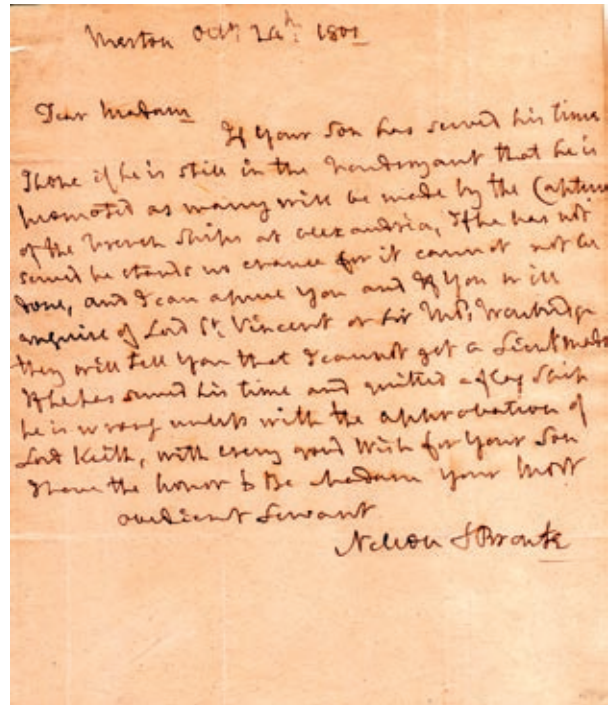 Merton Octr. 24th: 1801
Dear Madam
If Your Son has served his time
I hope if he is still in the Foudroyant that he is
promoted as many will be made by the Capture
of the French Ships at alexandria, If he has not
served he stands no chance for it cannot not be
done, and I can assure You and If You will
enquire of Lord St. Vincent or Sir Thos. Troubridge
they will tell You that I cannot get a Lieut made
If he has served his time and quitted a flag Ship
he is wrong unless with the approbation of
Lord Keith, with every good Wish for Your Son
I have the honor to Be Madam Your Most
obedient Servant
Nelson & Bronte